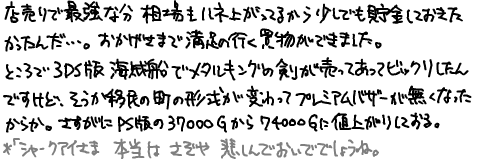 店売りで最強な分 相場もハネ上がってるから少しでも貯金しておきた
かったんだ…。おかげさまで満足の行く買物ができました。
ところで3DS版 海賊船でメタルキングの剣が売ってあってビックリしたん
ですけど、そうか移民の町の形式が変わってプレミアムバザーが無くなった
からか。さすがにPS版の37000Gから74000Gに値上がりしておる。
*「シャークアイさま 本当は さぞや 悲しんでおいででしょうね。